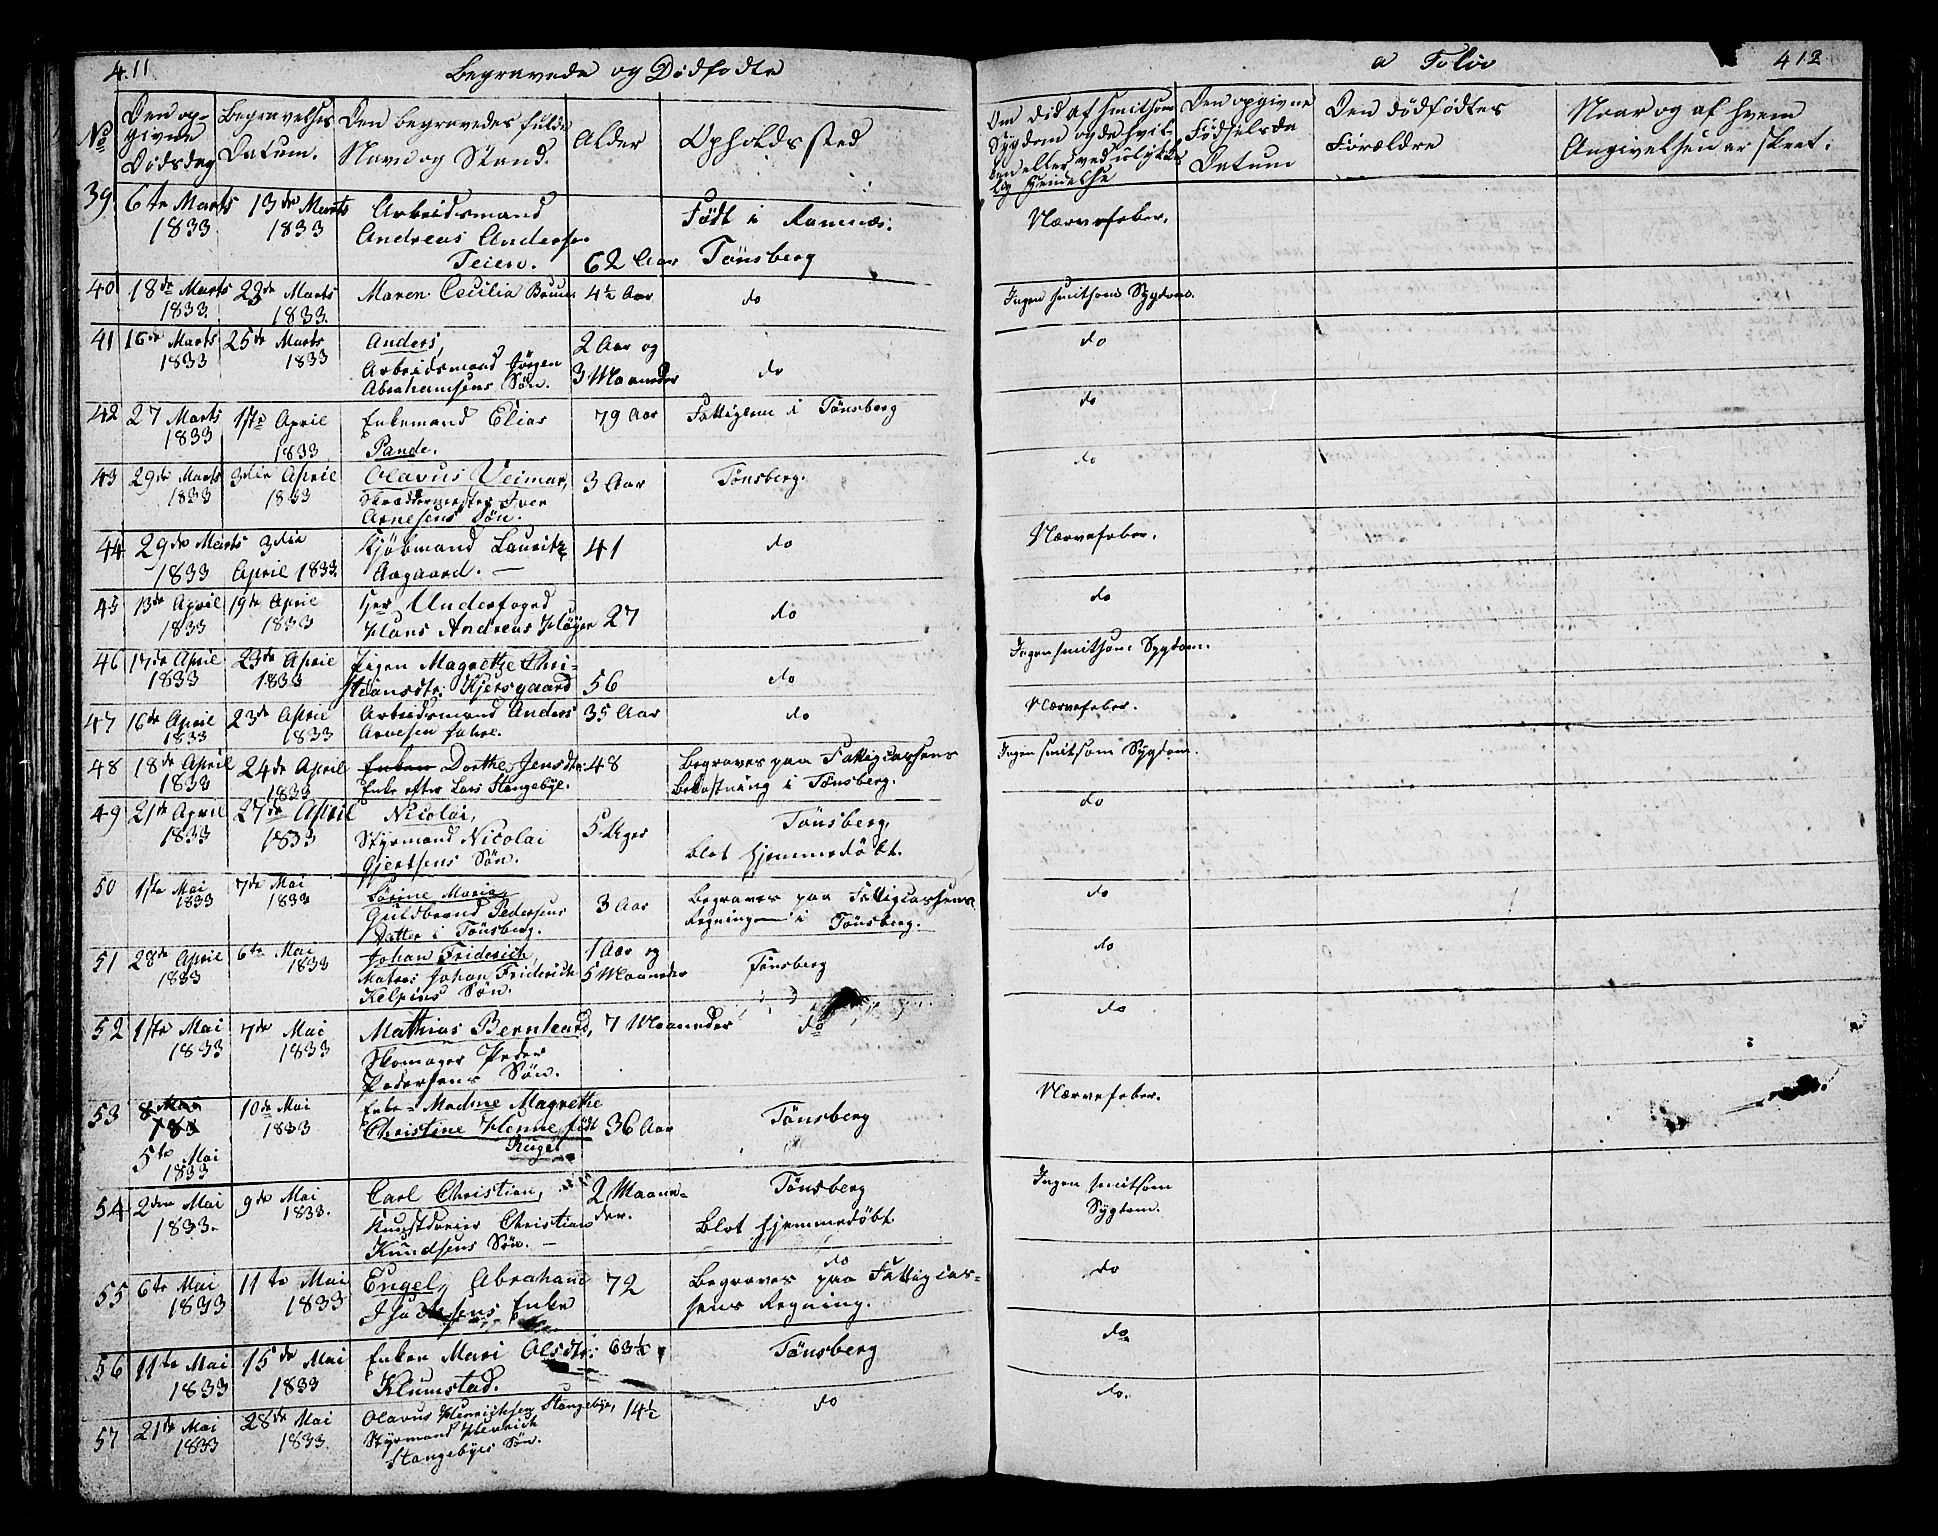 4.11
Begravede og Dødfødte
No
Den opgivne Dødsdag
Begravelses Datum.
Den begravedes fulde Navn og Stand.
Alder
Opholdssted
39
6te Marts 1833
13de Marts 1833
Arbeidsmand
Andreas Andersen
Teien.
62 Aar
Født i Ramnæs.
Tönsberg
40
18de Marts 1833.
23de Marts 1833.
Maren Cecilia Bruun
4½ Aar
do
41
16de Marts 1833
25de Marts 1833
Anders,
Arbeidsmand Jörgen
Abrahamsens Søn.
2 Aar og
3 Maaneder
do
42
27 Marts 1833
1ste April 1833
Enkemand Elias
Pande.
79 Aar
Fattiglem i Tönsberg
43
29de Marts 1833
3die April 1833
Olavus Veimar,
Skræddermester Iver
Arnesens Søn.
3 Aar
Tönsberg.
44
29de Marts 1833
3die April 1833.
Kjöbmand Lauritz
Aagaard.
41
do
45
13de April 1833
19de April 1833
Hr Underfoged
Hans Andreas Höyer
27
do
46
17de April 1833
23de April 1833
Pigen Magrethe Chri-
stiansdtr. Kjersgaard
56
do
47
16de April 1833
23de April 1833
Arbeidsmand Anders
Arvesen
35 Aar
do
48
18de April 1833
24de April 1833
Enken Dorthe Jensdtr.
Enke efter Lars Stangebÿe.
48
Begraves paa Fattigcassens
Bekostning i Tönsberg.
49
21de April 1833
27de April 1833
Nicolai,
Styrmand Nicolai
Gjertsens Søn.
5 Uger
Tönsberg,
Blot hjemmedøbt.
50
1ste Mai 1833
7de Mai 1833
Sörine Maria,
Guldbrand Pedersens
Datter i Tönsberg.
3 Aar
Begraves paa Fattigcassens
Regning i Tönsberg.
51
28de April 1833
6te Mai 1833
Johan Friderich,
Matros Johan Friderich
Kelpins Søn.
1 Aar og
5 Maaneder
Tönsberg
52
1ste Mai 1833
7de Mai 1833
Mathias Bernhard,
Skomager Peder
Pedersens Søn.
7 Maaneder
do
53
8 Mai 183
5te Mai 1833
10de Mai 1833
Enke-Madme Magrethe
Christine Henne født
Rügel
36 Aar
Tönsberg
54
2den Mai 1833.
9de Mai 1833.
Carl Christian,
Kunstdreier Christian
Knudsens Søn.
2 Maane-
der.
Tönsberg
Blot hjemmedøbt.
55
6te Mai 1833
11te Mai 1833
Engel, Abraham
Enke
72
do
Begraves paa Fattigcas-
sens Regning.
56
11te Mai 1833
15de Mai 1833
Enken Mari Olsdtr.
Klumstad.
63½
Tönsberg
57
21de Mai 1833
28de Mai 1833.
Olavus Henrichsen Stangebÿe,
Styrmand Henrich
Stangebÿes Søn.
14½
do
a Folio
412
Om død af smitsom
Sygdom og da hvil-
ken eller ved ulykke-
lig Hendelse
Den opgivne
Fødselsda
Datum
Den dødfødtes
Forældre
Naar og af hvem
Angivelsen er skeet.
Nærvefeber.
Ingen smitsom Sygdom.
do
do
do
Nærvefeber.
do
Ingen smitsom Sygdom.
Nærvefeber.
Ingen smitsom Sygdom.
do
do
do
do
Nærvefeber.
Ingen smitsom
Sygdom.
do
do
do.